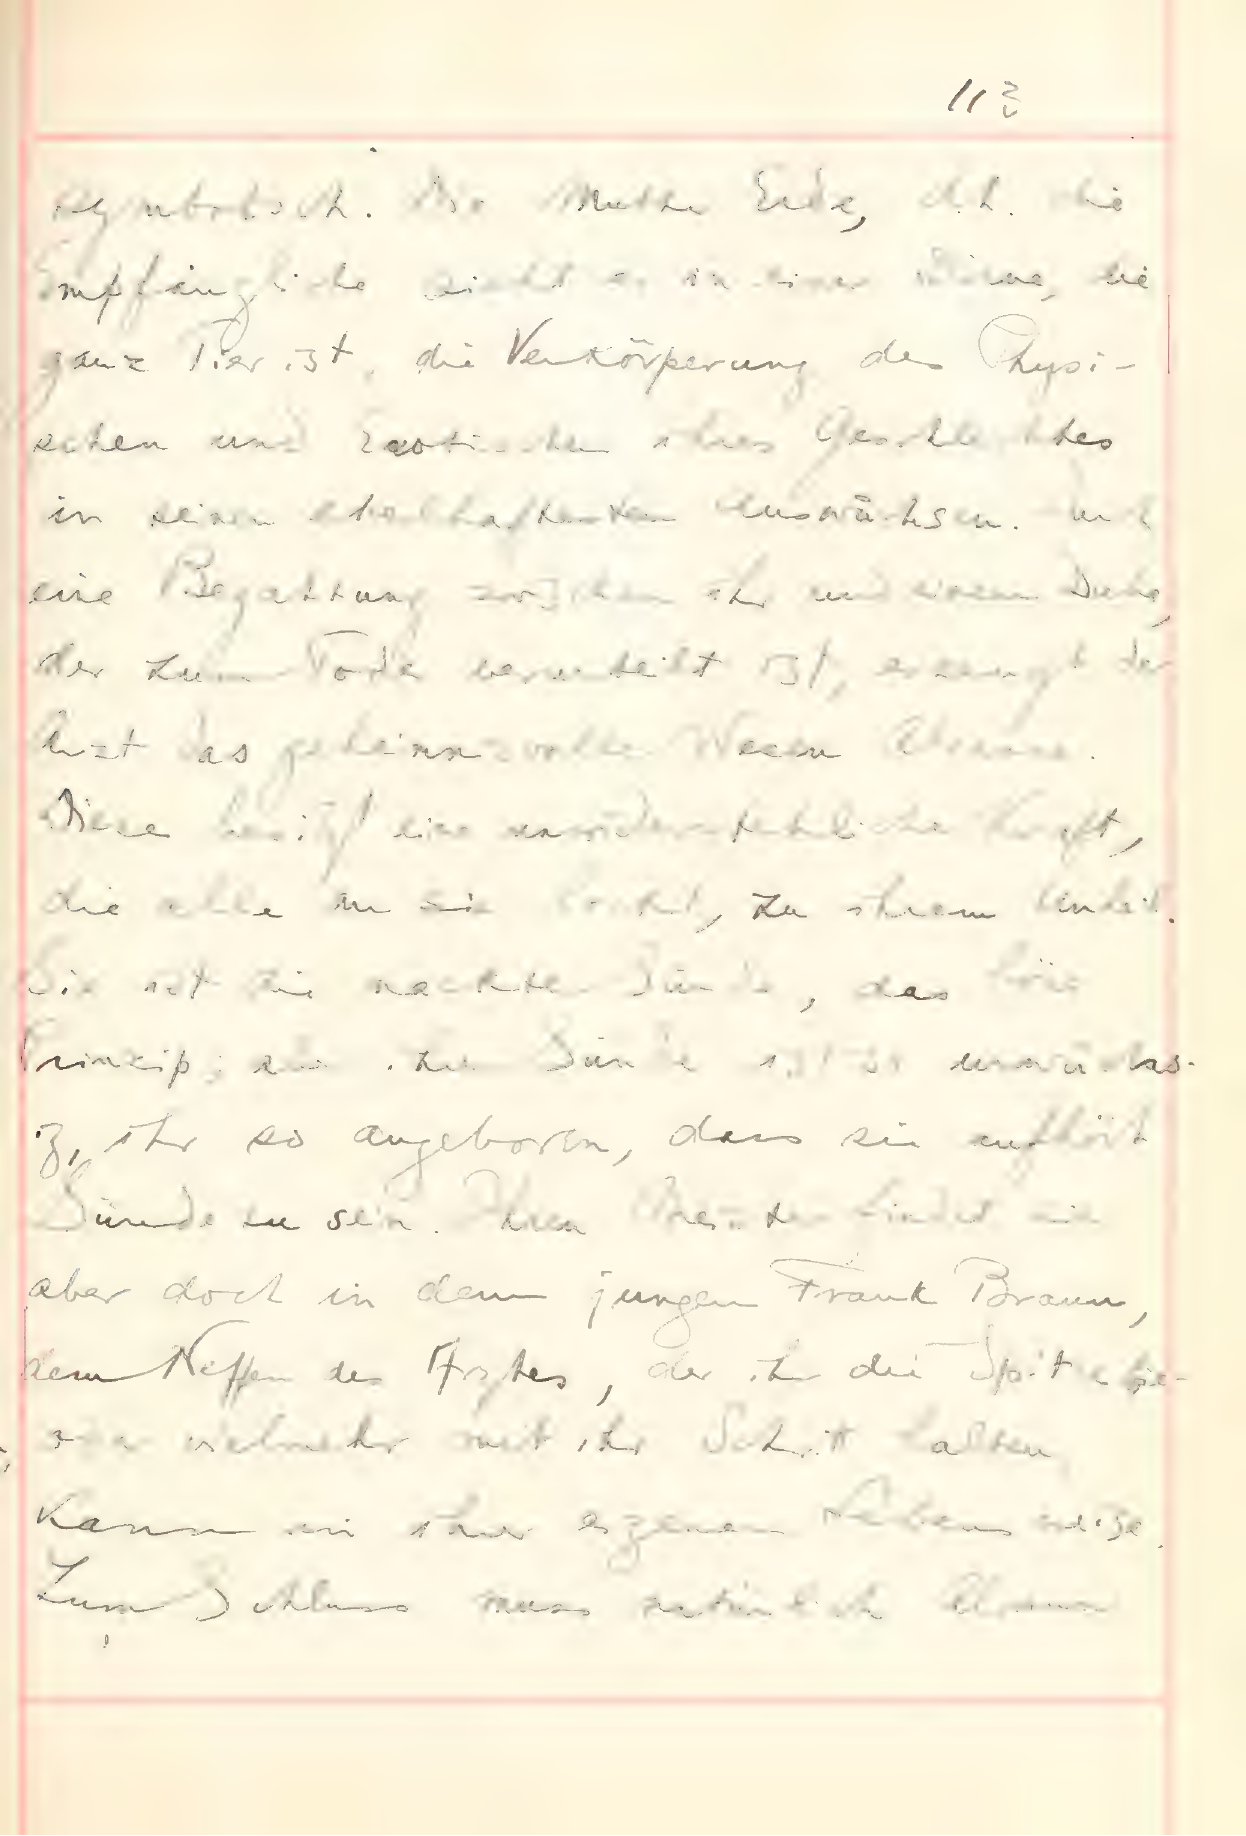 113
symbolisch. Die Mutter Erde, d.h. die
Empfängliche sieht er in einer Dirne, die
ganz Tier ist, die Verkörperung des Physi-
schen und Erotischen ihres Geschlechtes
in seinen ekelhaftesten Auswüchsen. Durch
eine Begattung zwischen ihr und einem Diebe,
der zum Tode verurteilt ist, erzeugt der
Arzt das geheimnisvolle Wesen Alraune.
Diese besitzt eine unwiderstehliche Kraft,
die alle an sie lockt, zu ihrem Unheil.
Sie ist die nackte Sünde, das böse
Prinzip; die Sünde ist so urwüchs-
ig, ihr so angeboren, dass sie aufhört
Sünde zu sein. Ihren Meister findet sie
aber doch in dem jungen Frank Braun,
dem Neffen des Arztes, der ihr die Spitze bie-
oder vielmehr mit ihr Schritt halten
kann in ihrer eigenen Lebensweise.
Zum Schluss muss natürlich Alraune